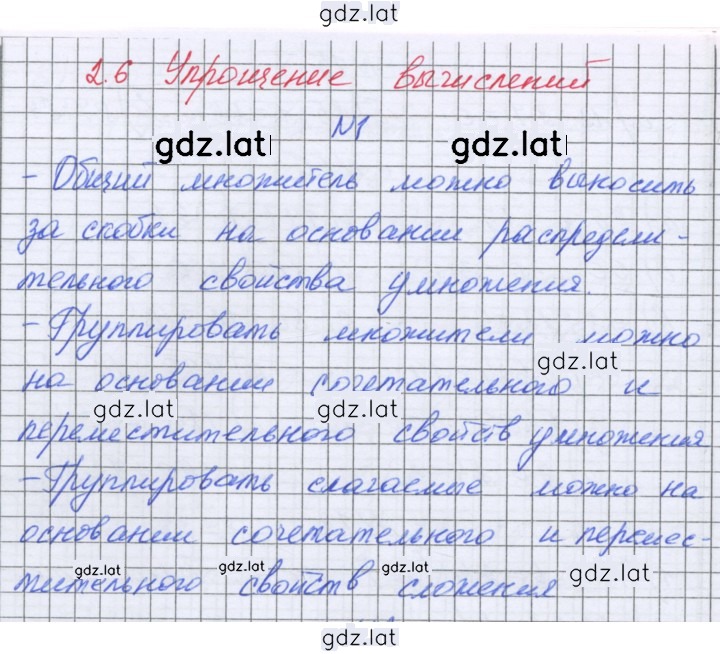 gdz.lat
2.6 Упрощение вычислений
№1
gdz.lat gdz.lat
- Общий множитель можно выносить
за скобки на основании распредели-
тельного свойства умножения.
- Группировать множители можно
gdz.lat
на основании сочетательного и
gdz.lat gdz.lat
переместительного свойств умножения
- Группировать слагаемые можно на
основании сочетательного и перемес-
gdz.lat gdz.lat gdz.lat
тительного свойств сложения
gdz.lat